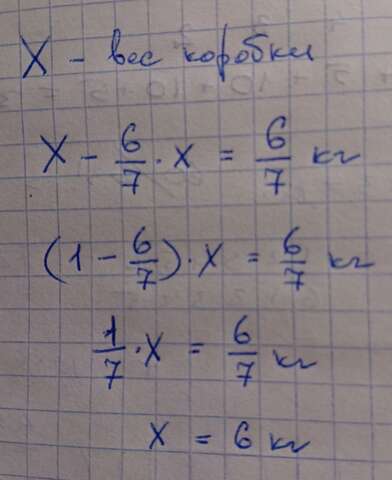 X - вес коробки
X - 6/7 · X = 6/7 кг
(1 - 6/7) · X = 6/7 кг
1/7 · X = 6/7 кг
X = 6 кг